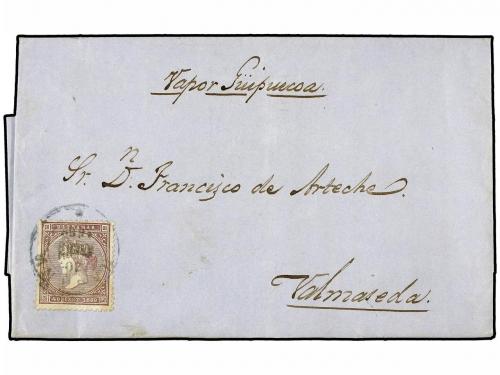 Vapor Güipuzcoa.
Sr. Dn. Francisco de Arteche.
Valmaseda.